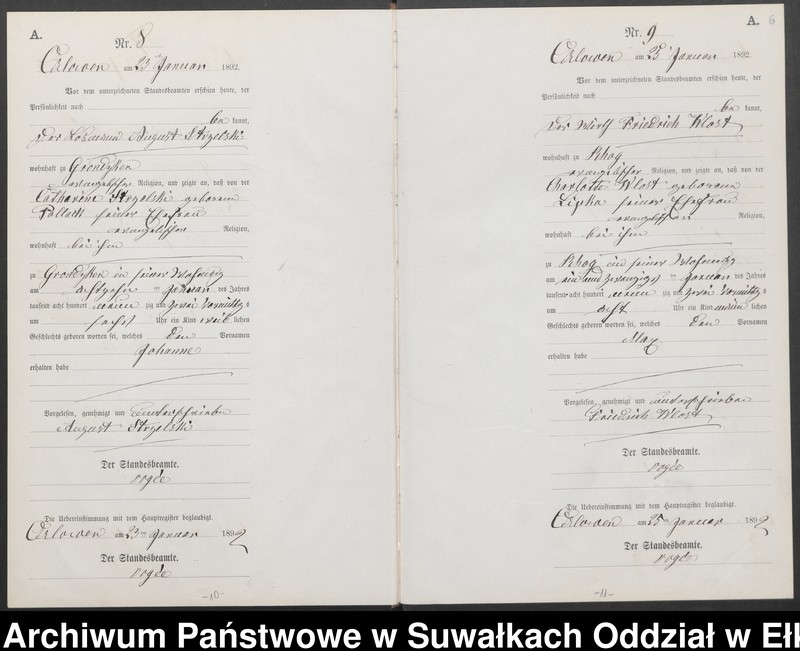 A.
Nr. 8
Czlowen am 23 Januar 1892.
Vor dem unterzeichneten Standesbeamten erschien heute, der
Persönlichkeit nach
be kannt,
der August Strzelski
wohnhaft zu Grondzken
evangelischer Religion, und zeigte an, daß von der
Catharine Strzelski geborene
Pollack seiner Ehefrau
evangelischer Religion,
wohnhaft bei ihm
zu Grondzken in seiner Wohnung
am achtzehn ten Januar des Jahres
tausend acht hundert neun zig und zwei Vormittags
um sechs Uhr ein Kind weib lichen
Geschlechts geboren worden sei, welches den Vornamen
Johanne
erhalten habe
Vorgelesen, genehmigt und unterschrieben
August Strzelski
Der Standesbeamte.
Vogde
Die Uebereinstimmung mit dem Hauptregister beglaubigt.
Czlowen am 23ten Januar 1892
Der Standesbeamte.
Vogde
-10-
A. 6
Nr. 9
Czlowen am 25 Januar 1892
Vor dem unterzeichneten Standesbeamten erschien heute, der
Persönlichkeit nach
be kannt,
der Wirth Friedrich Wlost
wohnhaft zu
evangelischer Religion, und zeigte an, daß von der
Charlotte Wlost geborene
Lipka seiner Ehefrau
evangelischer Religion,
wohnhaft bei ihm
zu in seiner Wohnung
am ein und zwanzigs ten Januar des Jahres
tausend acht hundert neun zig und zwei Vormittags
um acht Uhr ein Kind männ lichen
Geschlechts geboren worden sei, welches den Vornamen
Max
erhalten habe
Vorgelesen, genehmigt und unterschrieben
Friedrich Wlost
Der Standesbeamte.
Vogde
Die Uebereinstimmung mit dem Hauptregister beglaubigt.
Czlowen am 25ten Januar 1892
Der Standesbeamte.
Vogde
-11-
Archiwum Państwowe w Suwałkach Oddział w Ełk